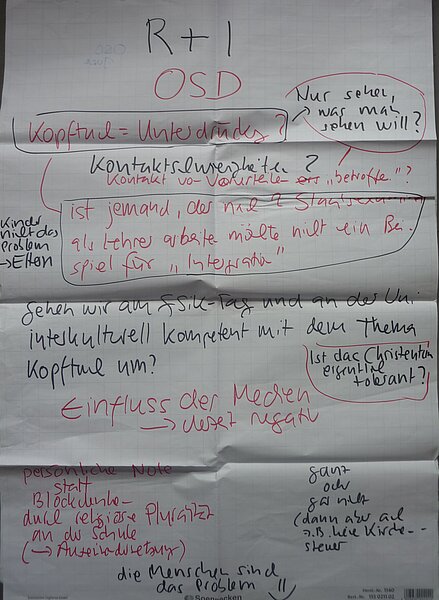 R + I
OSD
Nur sehen,
was man
sehen will?
Kopftuch = Unterdrückg?
Kontaktschwierigkeiten?
Kontakt vor Vorurteilen "betroffe."?
ist jemand, der nach 2 Staatsexamen
als Lehrer arbeite möchte nicht ein Bei-
spiel für "Integration"
Kinder
nicht das
Problem
→ Eltern
Gehen wir am FSIK-Tag und an der Uni
interkulturell kompetent mit dem Thema
Kopftuch um?
Ist das Christentum
eigentlich
tolerant?
Einfluss der Medien
→ derzeit negativ
persönliche Note
statt
durch religiöse Pluralität
an der Schule
(→ Auseinandersetzung)
ganz
oder
gar nicht
(dann aber auch
z.B. keine Kirchen-
steuer
die Menschen sind
das Problem !!
Best.-Nr. 1140